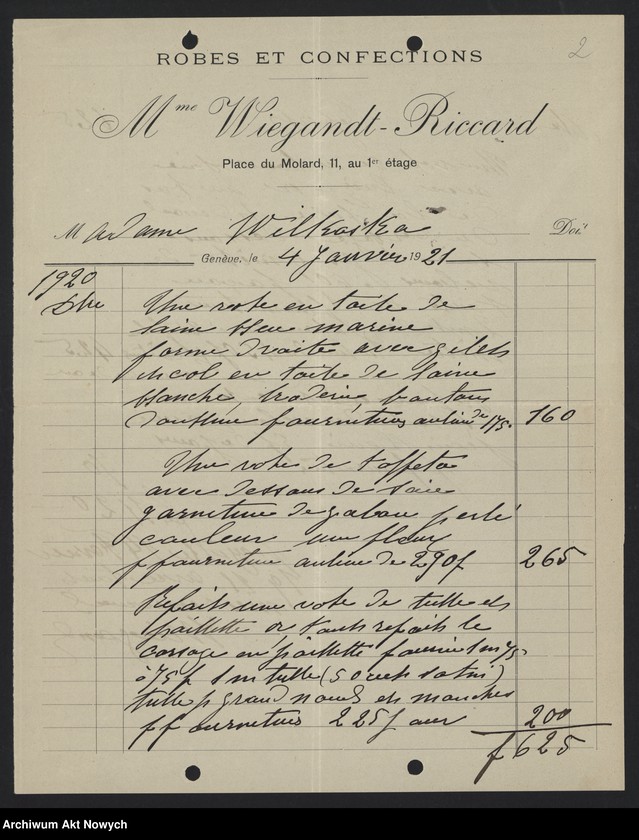 2
ROBES ET CONFECTIONS
Mme Wiegandt-Riccard
Place du Molard, 11, au 1er étage
Madame Wilkońska Doit
Genève, le 4 Janvier 1921
1920
Dbre Une robe en toile de
laine bleu marine
forme droite avec gilet
col en toile de laine
blanche, broderie, boutons
doublure fournitures au lieu de 175. 160
Une robe de taffetas
avec dessous de soie
garniture de galons perlé
couleur une fleur
fourniture au lieu de 290f 265
Refaits une robe de tulle et
paillette or, refaits le
corsage en paillette fournie 1m75
à 75f 1m tulle (50 satin)
tulle p grand nœud et manches
fournitures 225f 200
f 625
Archiwum Akt Nowych